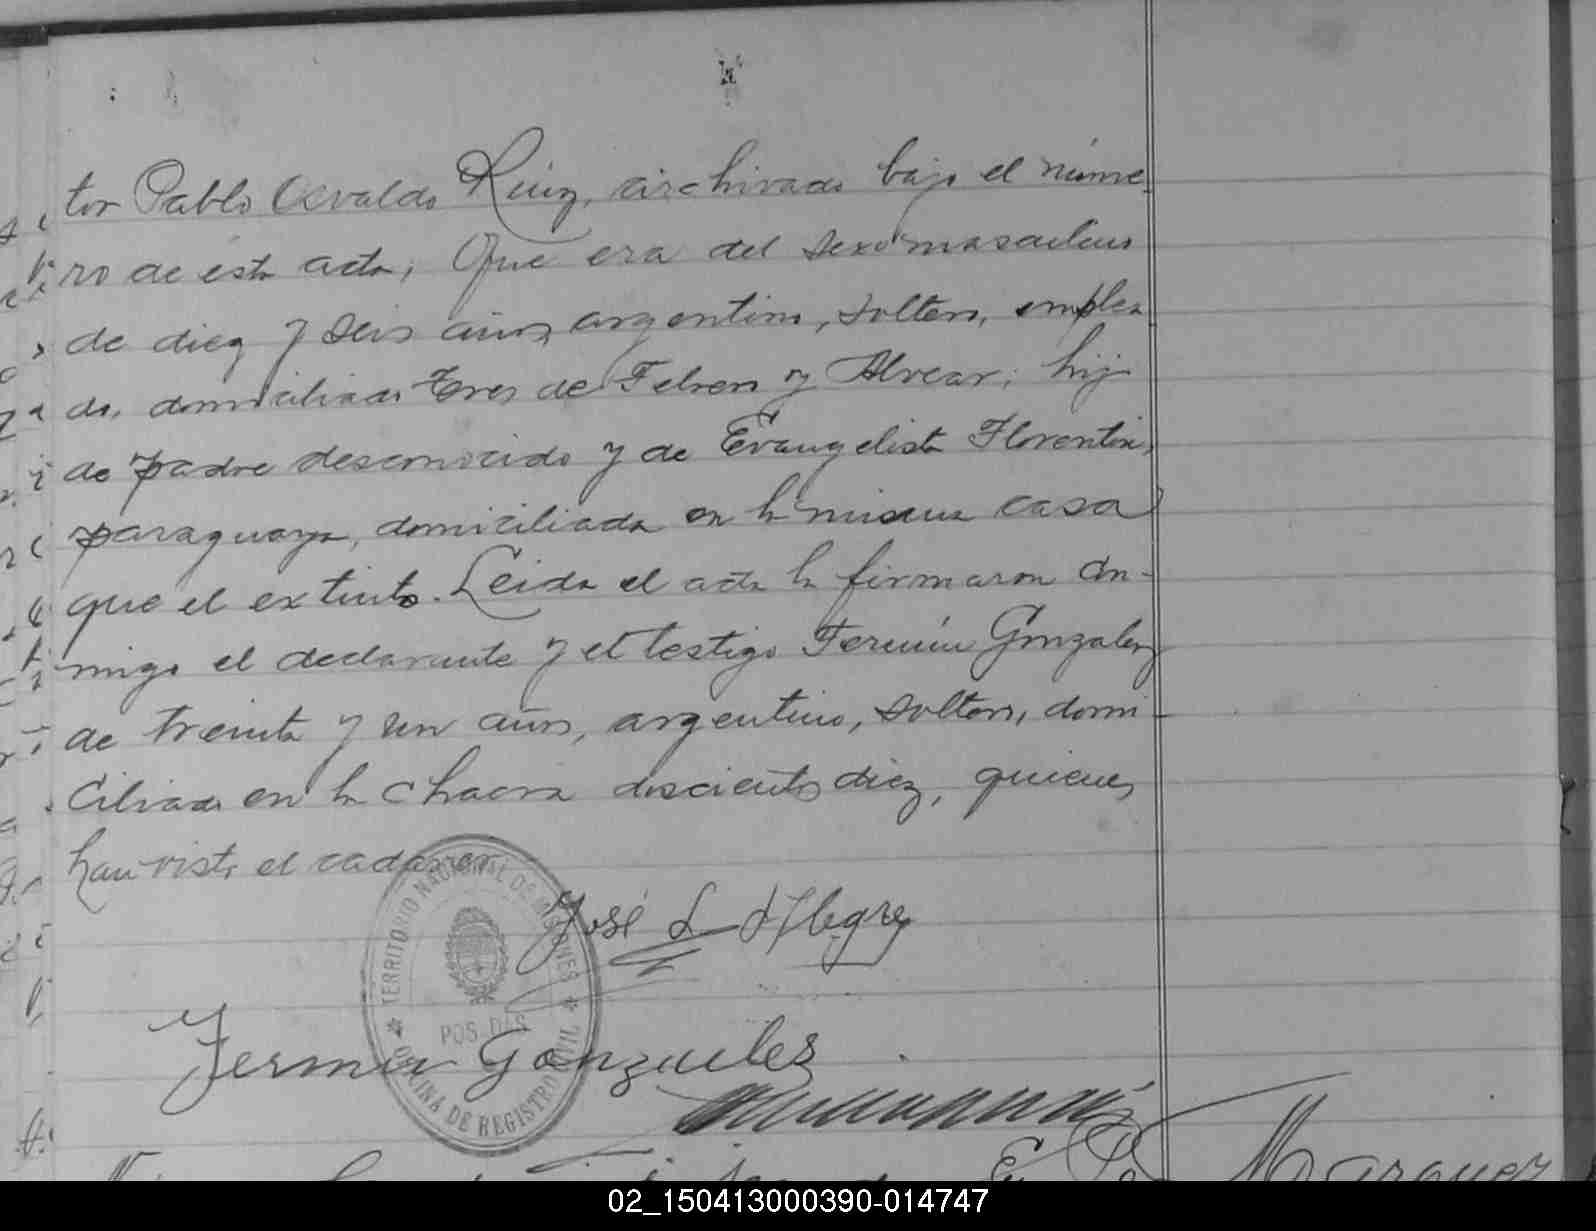 tor Pablo Osvaldo Ruiz, archivado bajo el núme
ro de esta acta; Que era del sexo masculino
de diez y seis años, argentino, soltero, emplea
do, domiciliado Tres de Febrero y Alvear; hijo
de padre desconocido y de Evangelista Florentin,
paraguaya, domiciliada en la misma casa
que el extinto. Leida el acta la firmaron con-
migo el declarante y el testigo Fermín Gonzalez
de treinta y un años, argentino, soltero, domi-
ciliado en la chacra doscientos diez, quienes
han visto el cadaver.
José L. Alegre
Fermin Gonzales
TERRITORIO NACIONAL DE MISIONES
POSADAS
OFICINA DE REGISTRO CIVIL
Marquez
02_150413000390-014747